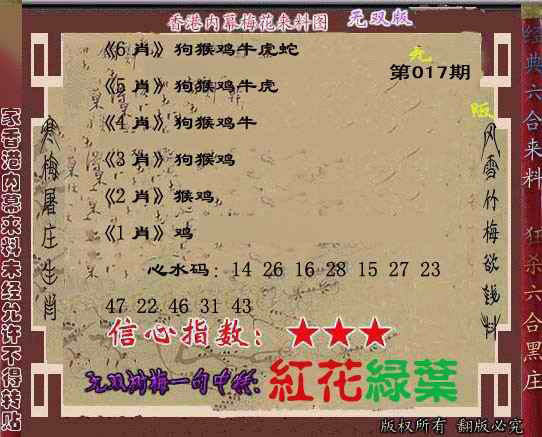 香港内幕梅花来料图 无双版
《6 肖》狗猴鸡牛虎蛇
无
第017期
《5 肖》狗猴鸡牛虎
版
《4 肖》狗猴鸡牛
《3 肖》狗猴鸡
《2 肖》猴鸡
《1 肖》鸡
心水码: 14 26 16 28 15 27 23
47 22 46 31 43
信心指数: ★★★
红花綠葉
寒梅屠庄生肖
风雪竹梅欲钱料
家香港内幕来料未经允许不得转贴
经典六合来料 狂杀六合黑庄
版权所有 翻版必究